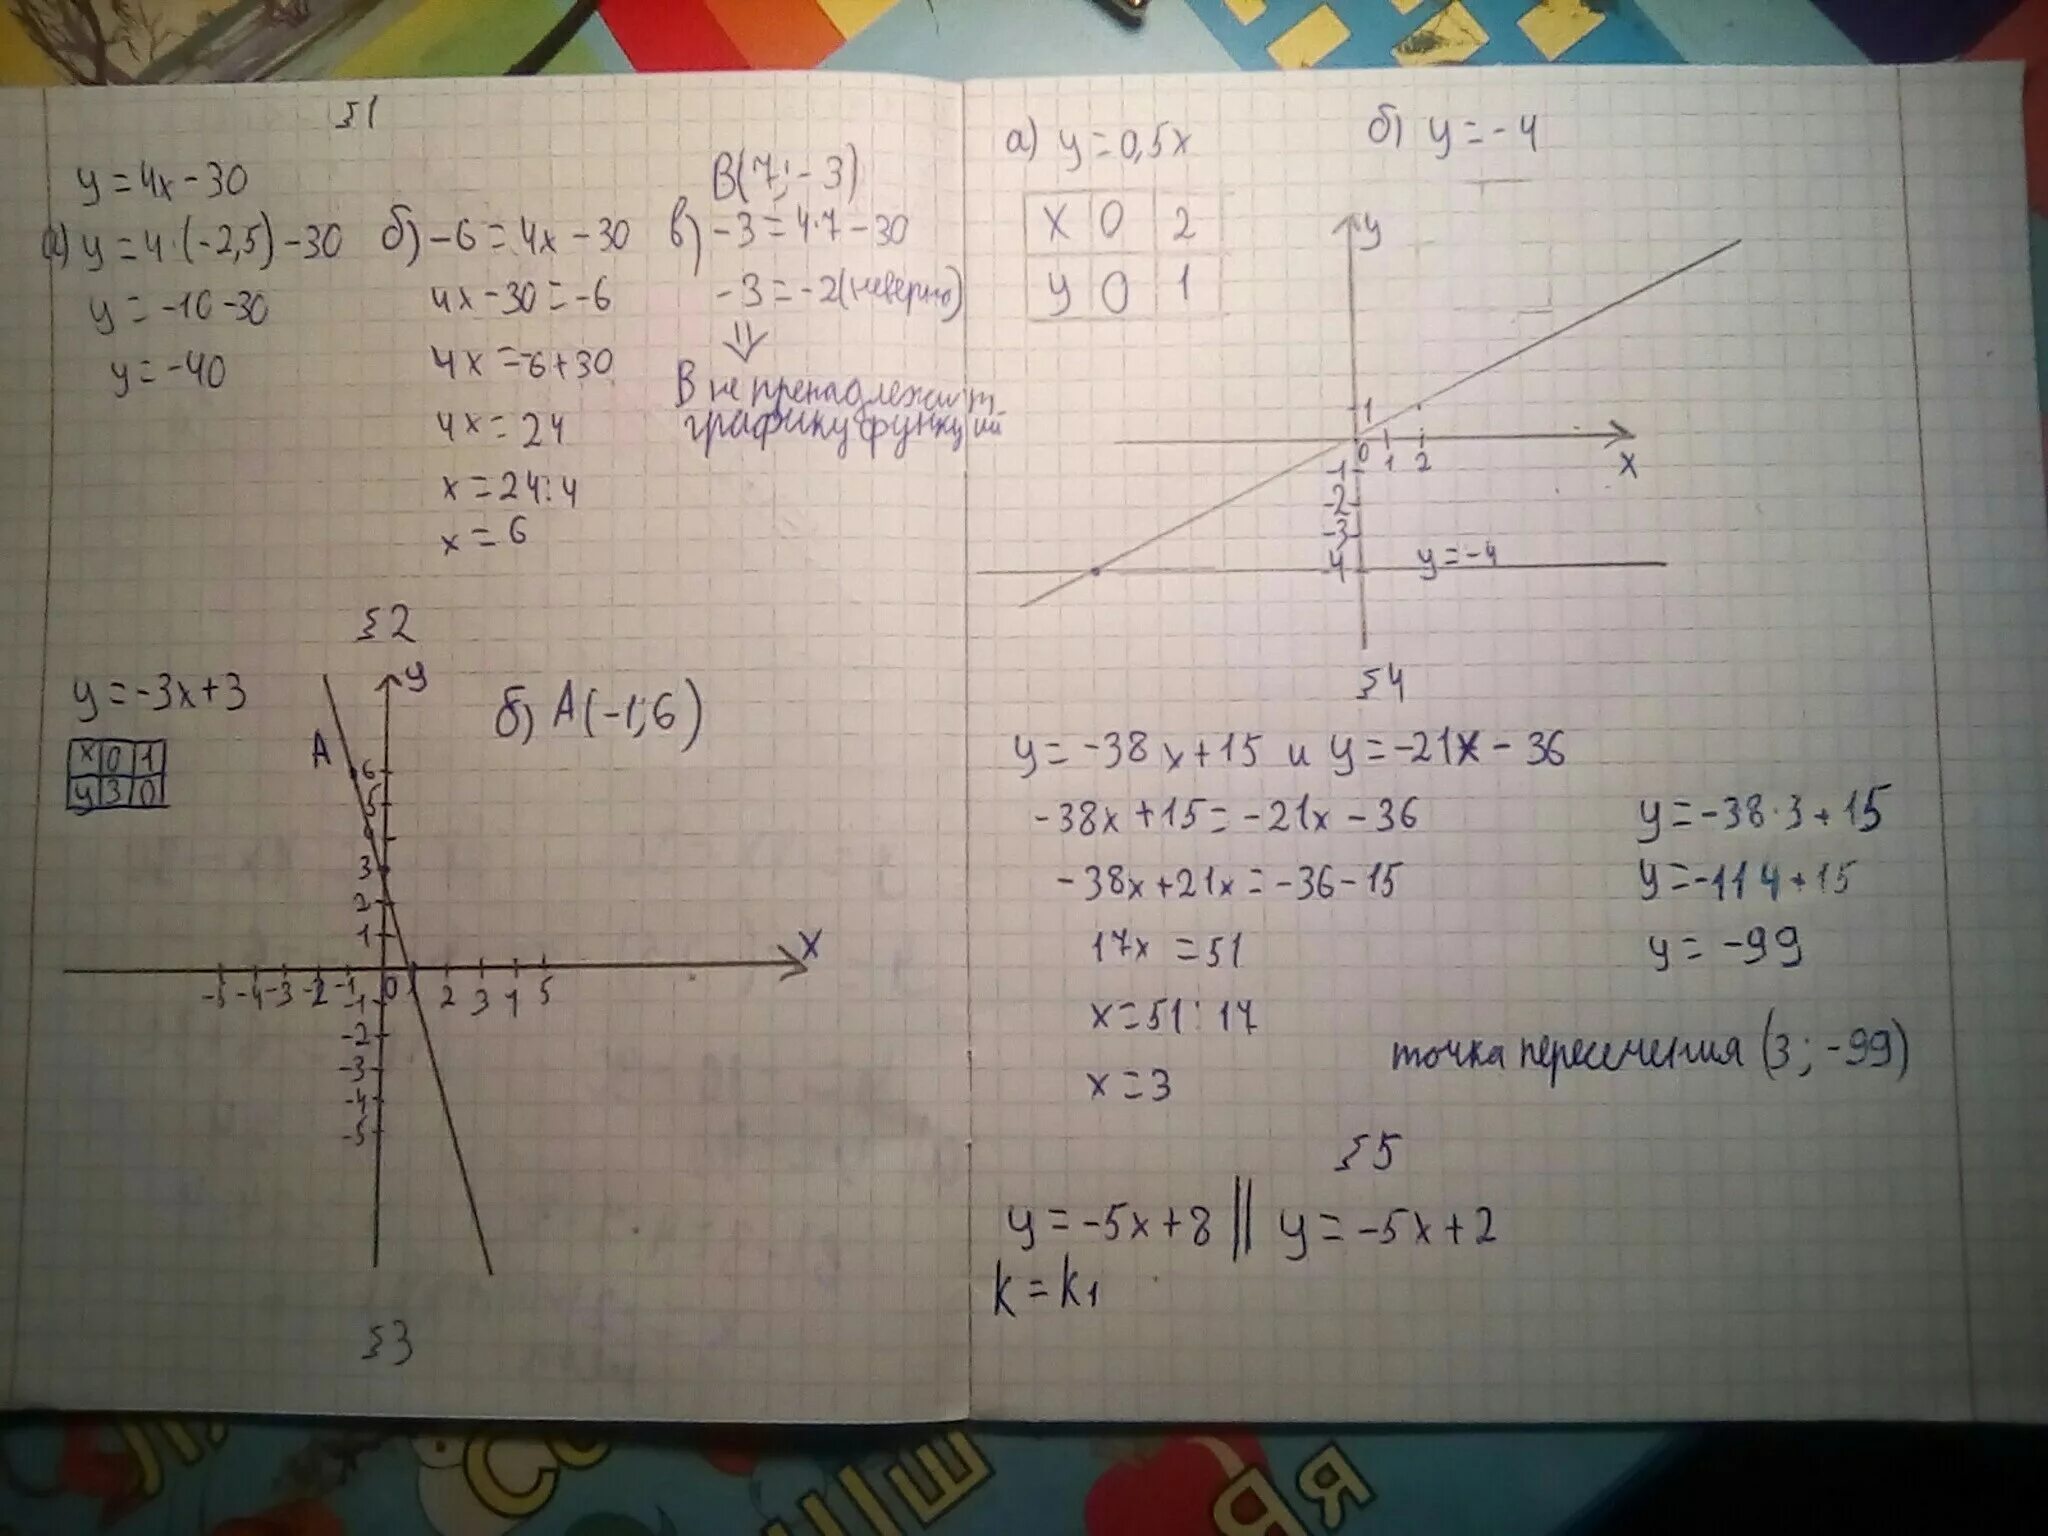 §1
y = 4x - 30
а) y = 4·(-2,5) - 30
y = -10 - 30
y = -40
б) -6 = 4x - 30
4x - 30 = -6
4x = -6 + 30
4x = 24
x = 24 : 4
x = 6
B(7; -3)
в) -3 = 4·7 - 30
-3 = -2 (неверно)
⇓
В не пренадлежит
графику функций
§2
y = -3x + 3
x 0 1
y 3 0
б) A(-1; 6)
A
y
6
5
4
3
2
1
x
-5 -4 -3 -2 -1 0 1 2 3 4 5
-1
-2
-3
-4
-5
§3
а) y = 0,5x
б) y = -4
x 0 2
y 0 1
y
1
0 1 2
x
-1
-2
-3
-4
y = -4
§4
y = -38x + 15 и y = -21x - 36
-38x + 15 = -21x - 36
-38x + 21x = -36 - 15
17x = 51
x = 51 : 17
x = 3
y = -38·3 + 15
y = -114 + 15
y = -99
точка пересечения (3; -99)
§5
y = -5x + 8 || y = -5x + 2
k = k1